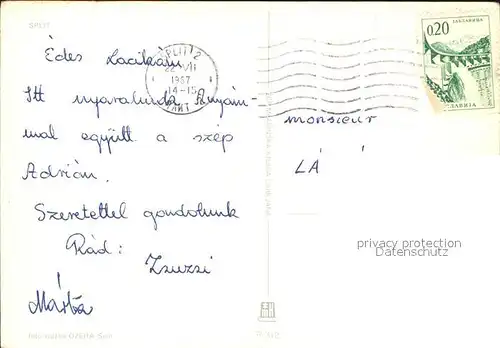 SPLIT
Édes Lacikám
Itt nyaralunk Anyám-
mal együtt a szép
Adrián.
Szeretettel gondolunk
Rád:
Zsuzsi
Márta
SPLIT 2
1967
14-15
0,20
monsieur
LÁ
privacy protection
Datenschutz